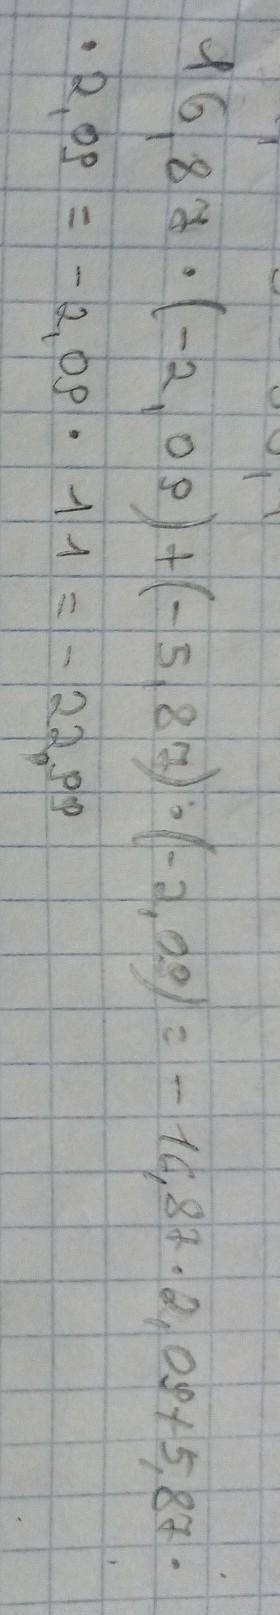 16,87 · (-2,09) + (-5,87) · (-2,09) = -16,87 · 2,09 + 5,87 ·
· 2,09 = -2,09 · 11 = -22,99